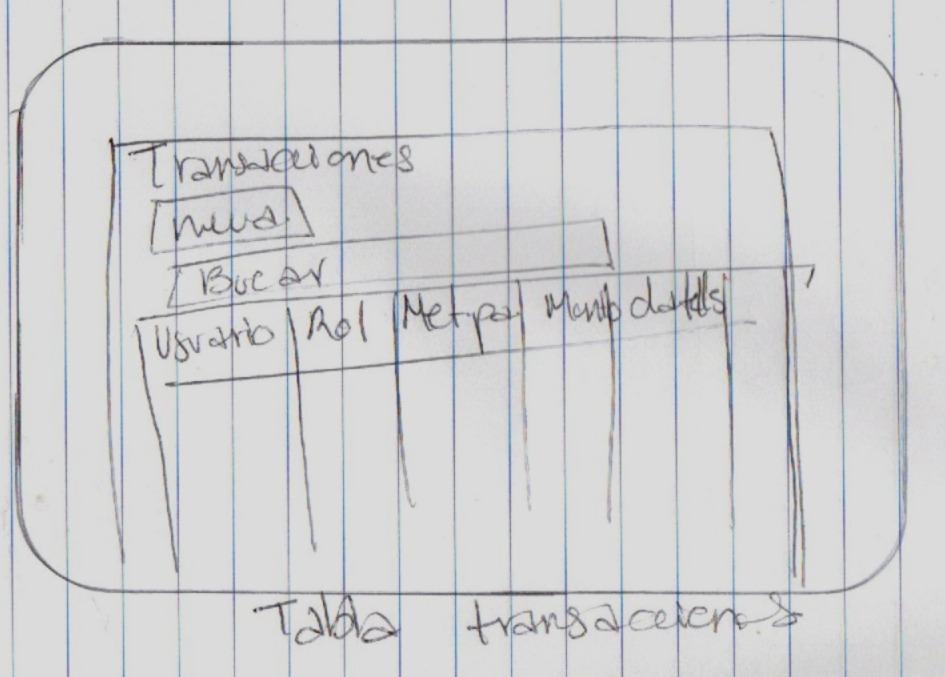 Transacciones
nueva
Bucar
Usuario Rol Met.pa Monto datells
Tabla transacciones